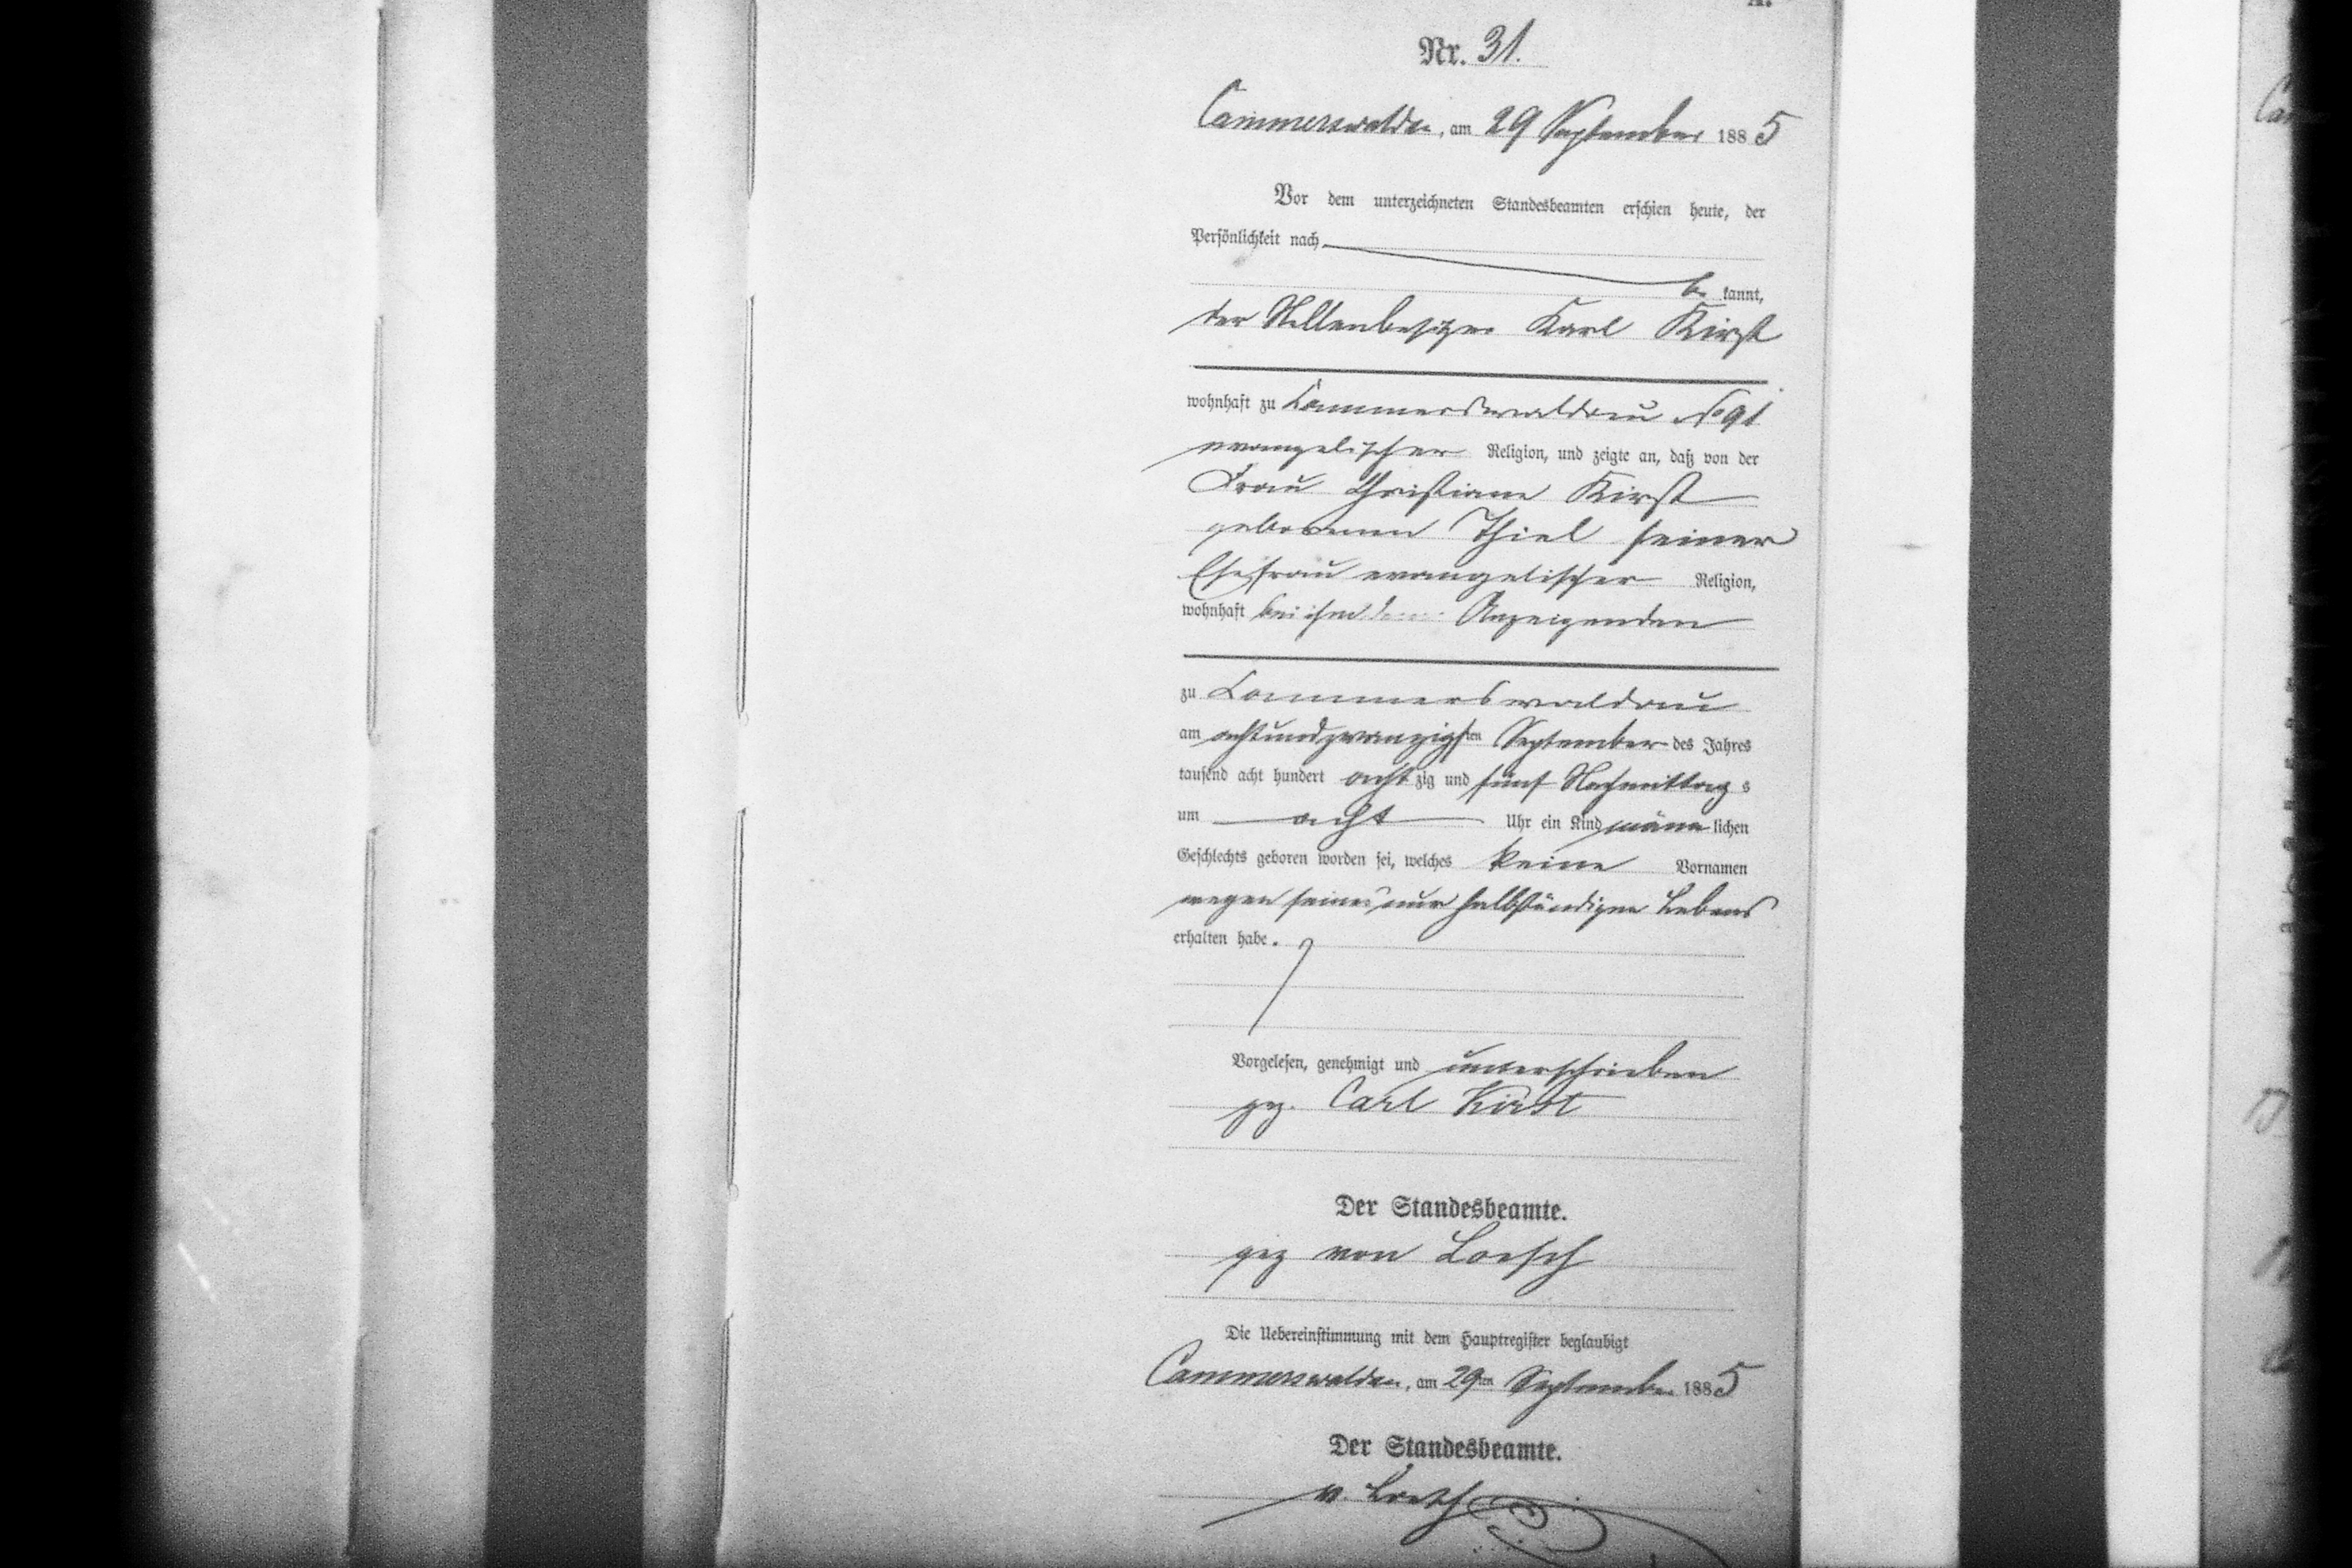 A.
Nr. 31.
Cammerswaldau, am 29 September 1885
Vor dem unterzeichneten Standesbeamten erschien heute, der
Persönlichkeit nach
be kannt,
der Stellenbesitzer Karl Kirst
wohnhaft zu Cammerswaldau No 91
evangelischer Religion, und zeigte an, daß von der
Frau Christiane Kirst
geborenen Thiel seiner
Ehefrau evangelischer Religion,
wohnhaft bei ihm Anzeigenden
zu Cammerswaldau
am achtundzwanzigsten September des Jahres
tausend acht hundert achtzig und fünf Nachmittags
um acht Uhr ein Kind männlichen
Geschlechts geboren worden sei, welches keine Vornamen
wegen seines nur halbstündigen Lebens
erhalten habe.
Vorgelesen, genehmigt und unterschrieben
gez. Carl Kirst
Der Standesbeamte.
gez von Loesch
Die Uebereinstimmung mit dem Hauptregister beglaubigt
Cammerswaldau, am 29ten September 1885
Der Standesbeamte.
v. Loesch